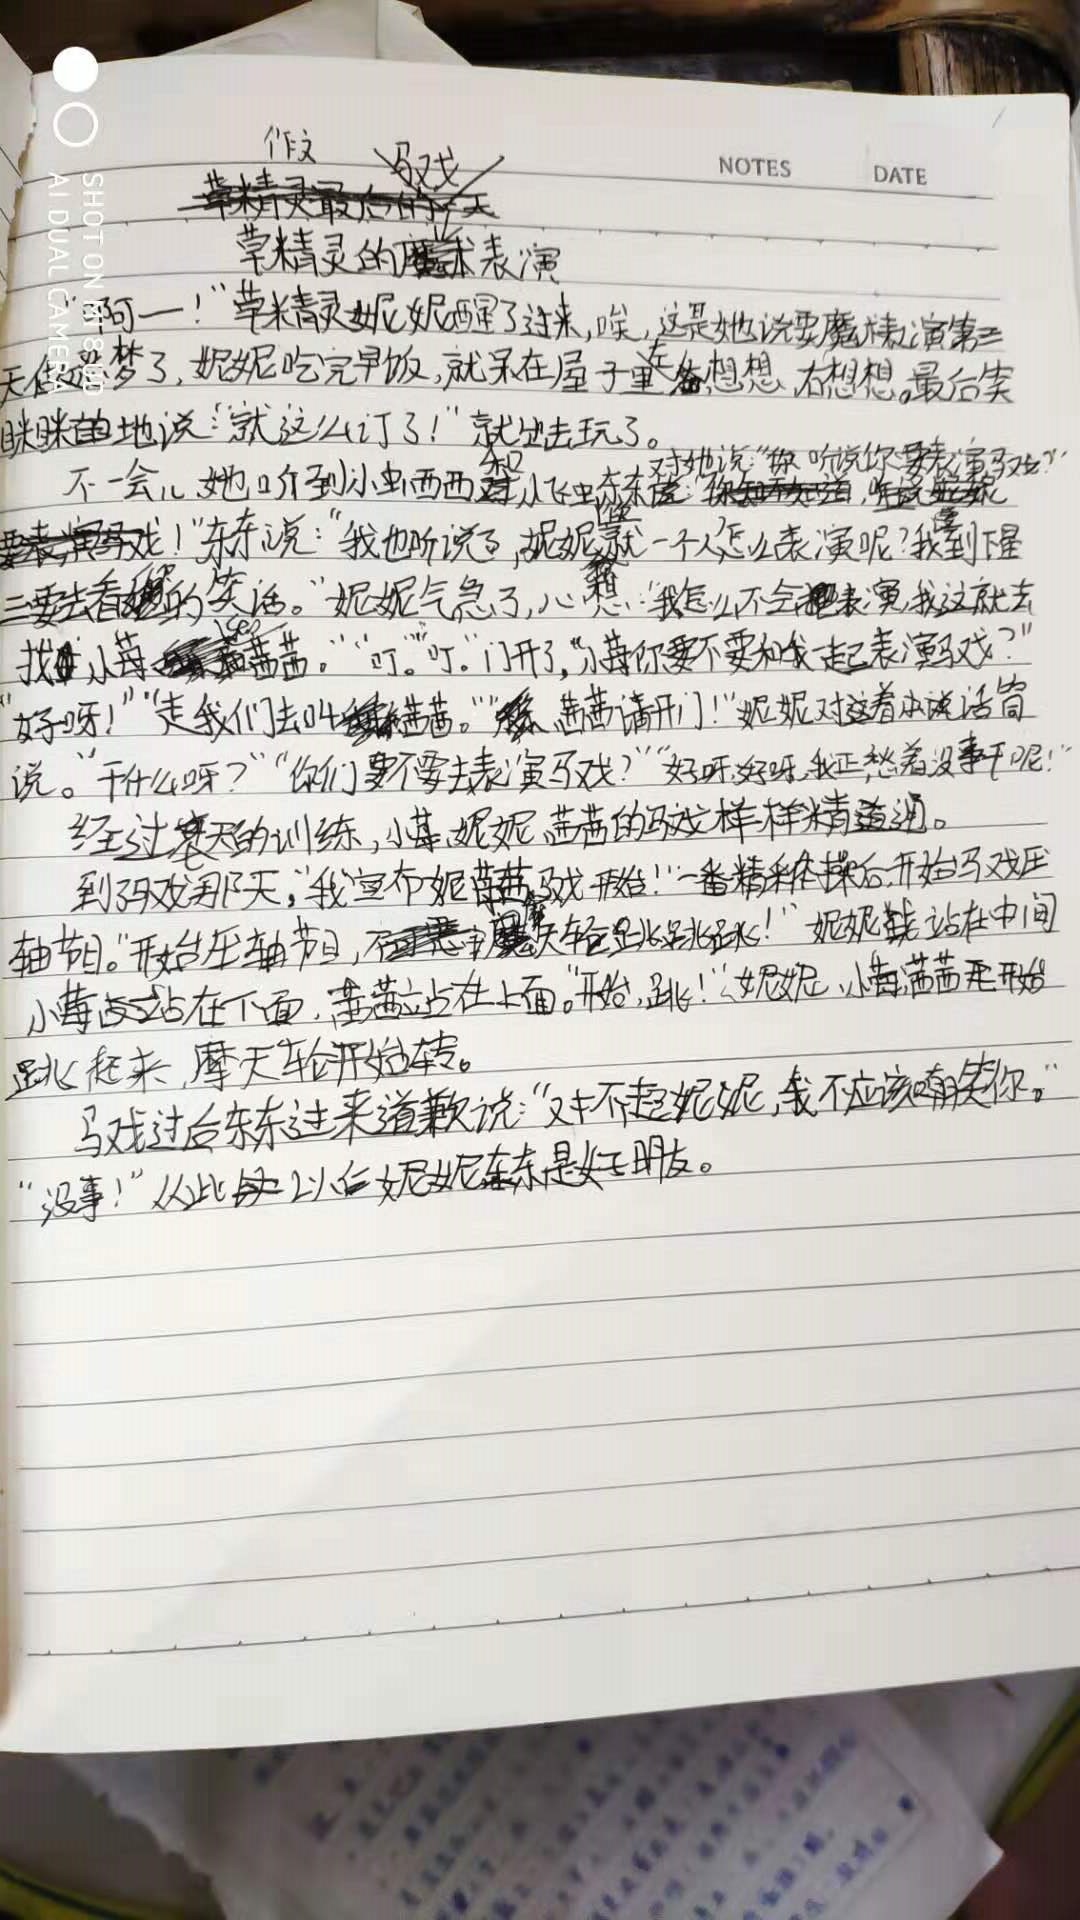 NOTES
DATE
作文
马戏
草精灵最后的一天
草精灵的魔术表演
"啊一！"草精灵妮妮醒了过来,唉,这是她说要魔术表演第三
天做恶梦了,妮妮吃完早饭,就呆在屋子里左想想,右想想。最后笑
眯眯地说:"就这么订了！"就出去玩了。
对她说:"你听说你要表演马戏?"
不一会儿她听到小虫西西和小飞虫东东说:你知不知道,听说妮妮
要表演马戏！"东东说:"我也听说了,妮妮就一个人,怎么表演呢?我到下星
三要去看她的笑话。"妮妮气急了,心想:"我怎么不会表演,我这就去
找小莓 茜茜。""叮。叮。门开了,"小莓你要不要和我一起表演马戏?"
"好呀！""走我们去叫茜茜。""茜茜请开门！"妮妮对这着说话筒
说。"干什么呀?""你们要不要去表演马戏?""好呀,好呀,我正愁着没事干呢！"
经过天的训练,小莓,妮妮,茜茜的马戏样样精通。
到了马戏那天,"我宣布妮茜马戏开始！"一番精彩后,开始马戏压
轴节目。"开始压轴节目,摩天轮跳跳跳！"妮妮站在中间
小莓站在下面,茜茜站在上面。"开始,跳！"妮妮,小莓,茜茜开始
跳起来,摩天轮开始转。
马戏过后东东过来道歉说:"对不起妮妮,我不应该嘲笑你。"
"没事！"从此以后妮妮东东是好朋友。
SHOT ON MI 8UD
AI DUAL CAMERA